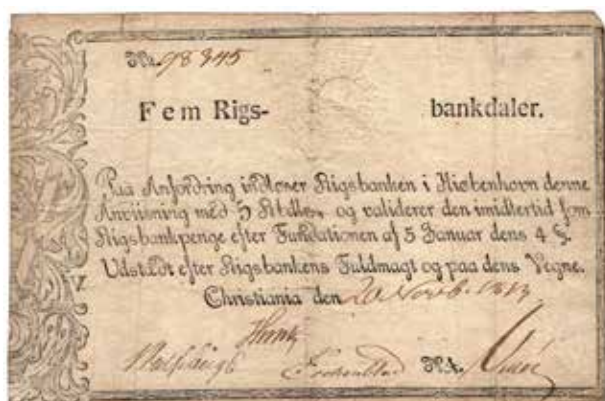 No. 98345
Fem Rigs- bankdaler.
Paa Anfordring indløser Rigsbanken i Kiøbenhavn denne
Anviisning med 5 Rbdlr. og validerer den imidlertid som
Rigsbankpenge efter Fundationen af 5 Januar dens 4 §.
Udstædt efter Rigsbankens Fuldmagt og paa dens Vegne.
Christiania den 20 Novb. 1813